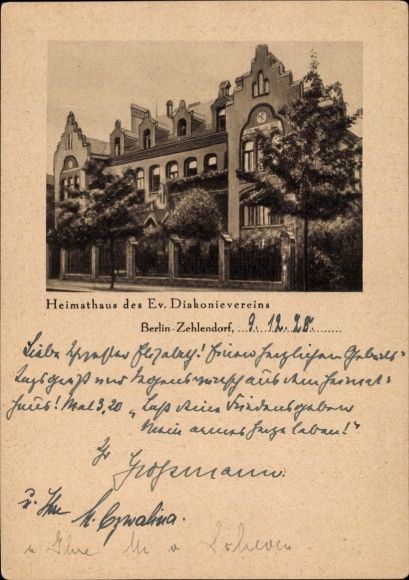 Heimathaus des Ev. Diakonievereins
Berlin-Zehlendorf, 9.12.28.
Liebe Schwester Elisabeth! Einen herzlichen Geburts-
tagsgruß und Segenswunsch aus dem Heimat-
haus! Mal 3,20 „Laß deine Friedensgaben
Mein armes Herze laben!"
Ihre
Großmann.
u. Ihre M. Czwalina.
u Ihre M v Scheven.